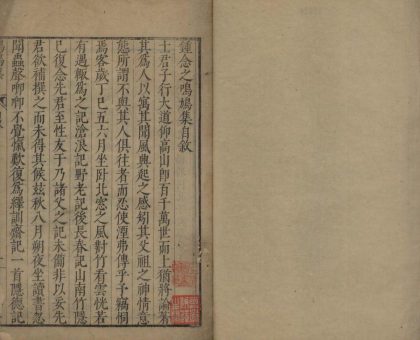 鍾念之鳴鳩集自敘
士君子行大道仰高山即百千萬世而上猶將論著
其為人以寓其聞風興起之感矧其父祖之神情意
態所謂不與其人俱往者而忍使湮弗傳乎予竊恫
焉客歲丁巳五六月坐臥北窓之風對竹看雲恍若
有遇輙為之記滄浪記野老記後長春記山南竹隱
已復念先君至性友于乃諸父之記未備非以妥先
君欲補撰之而未得其候玆秋八月朔夜坐讀書忽
聞蟲聲唧唧不覺愾歎復為繹訓齋記一首隱德記